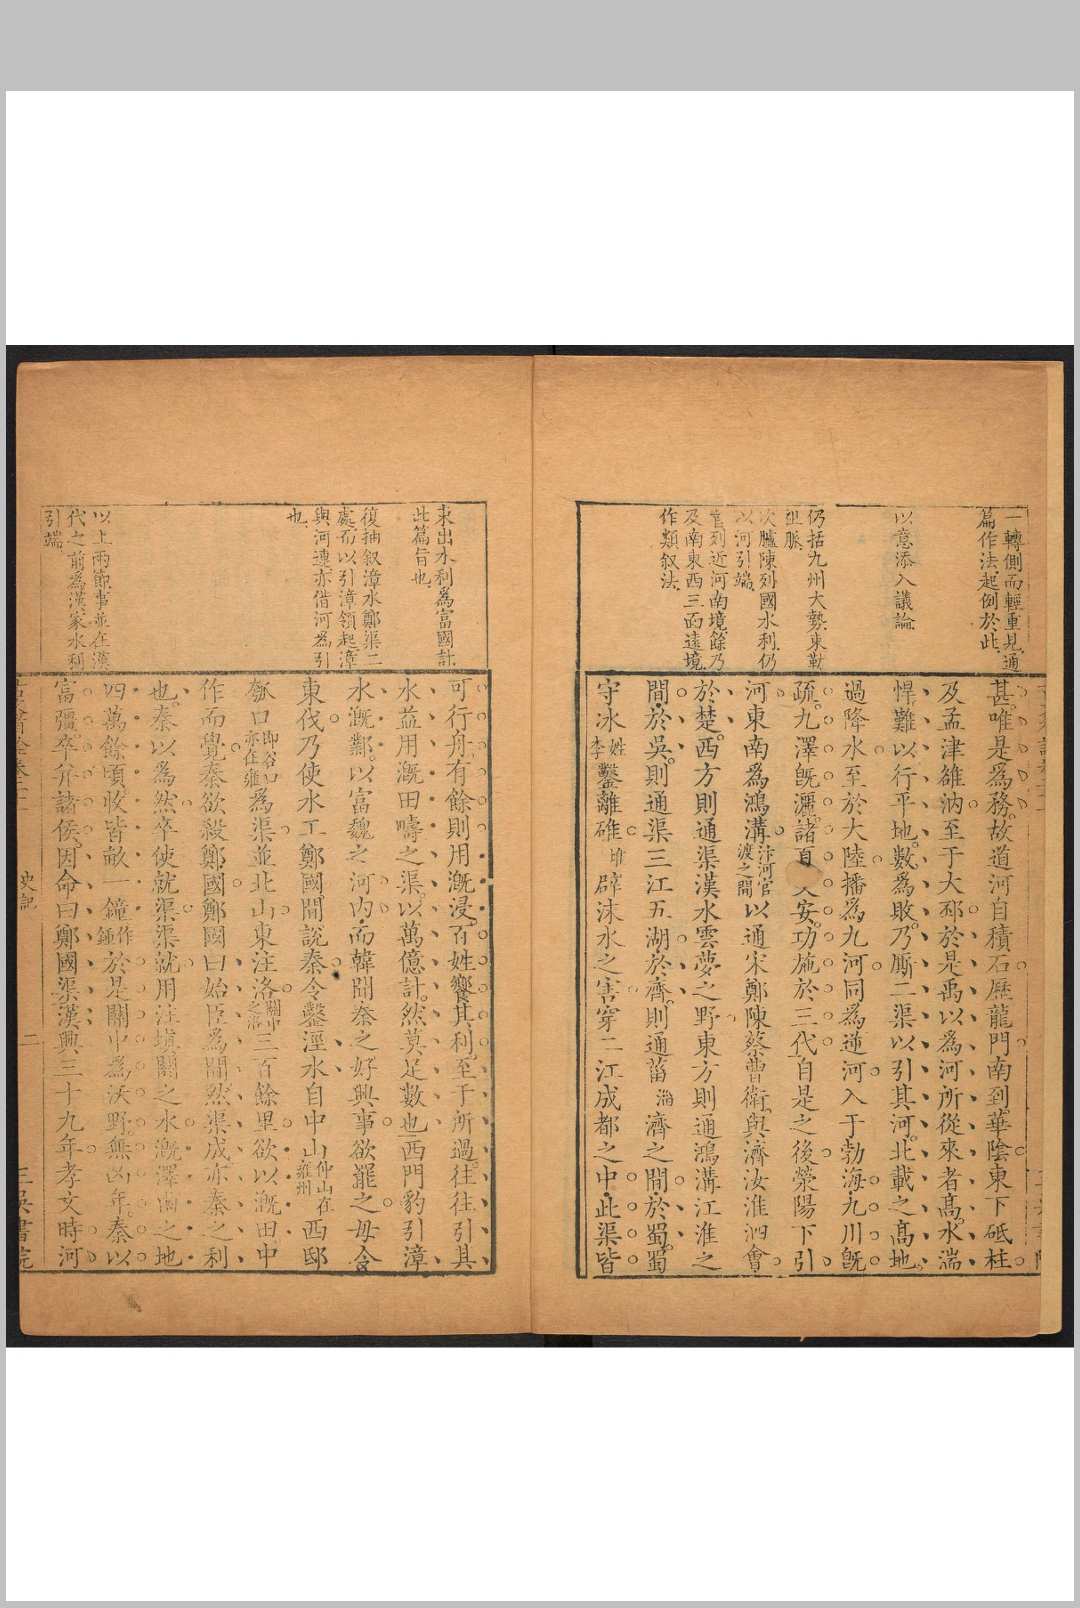 一轉側而輕重見通
篇作法起例於此
以意添入議論
仍括九州大勢東勒
組脈
次臚陳列國水利仍
以河引端
首列近河南境餘乃
及南東西三面遠境
作類叙法
甚唯是為務故道河自積石歷龍門南到華陰東下砥柱
及孟津雒汭至于大邳於是禹以為河所從來者高水湍
悍難以行平地數為敗乃厮二渠以引其河北載之高地
過降水至於大陸播為九河同為逆河入于勃海九川既
疏九澤既灑諸夏乂安功施於三代自是之後滎陽下引
河東南為鴻溝汴河官渡之間以通宋鄭陳蔡曹衛與濟汝淮泗會
於楚西方則通渠漢水雲夢之野東方則通鴻溝江淮之
間於吳則通渠三江五湖於齊則通菑淄濟之間於蜀蜀
守冰姓李鑿離碓堆辟沫水之害穿二江成都之中此渠皆
東出水利為富國計
此篇旨也
復抽叙漳水鄭渠二
處而以引漳領起漳
與河連亦借河為引
也
以上兩節事並在漢
代之前為漢家水利
引端
可行舟有餘則用漑浸百姓饗其利至于所過往往引其
水益用漑田疇之渠以萬億計然莫足數也西門豹引漳
水漑鄴以富魏之河內而韓聞秦之好興事欲罷之毋令
東伐乃使水工鄭國間說秦令鑿涇水自中山仲山在雍州西邸
瓠口即谷口亦在雍為渠並北山東注洛關中之洛三百餘里欲以漑田中
作而覺秦欲殺鄭國鄭國曰始臣為間然渠成亦秦之利
也秦以為然卒使就渠渠就用注填閼之水漑澤鹵之地
四萬餘頃收皆畝一鐘作鍾於是關中為沃野無凶年秦以
富彊卒并諸侯因命曰鄭國渠漢興三十九年孝文時河
史記
二